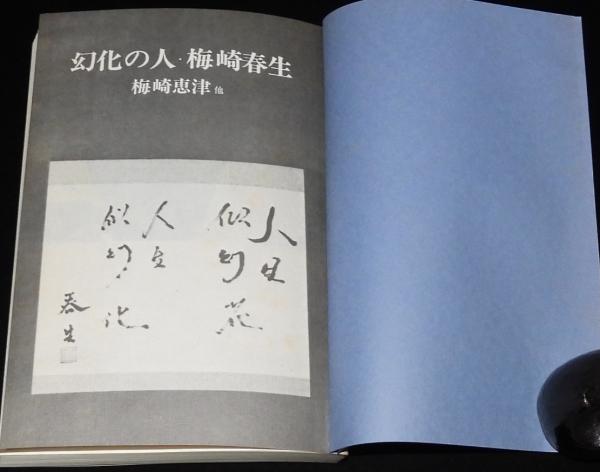 幻化の人・梅崎春生
梅崎恵津 他
人生
似幻花
人生
似幻化
春生